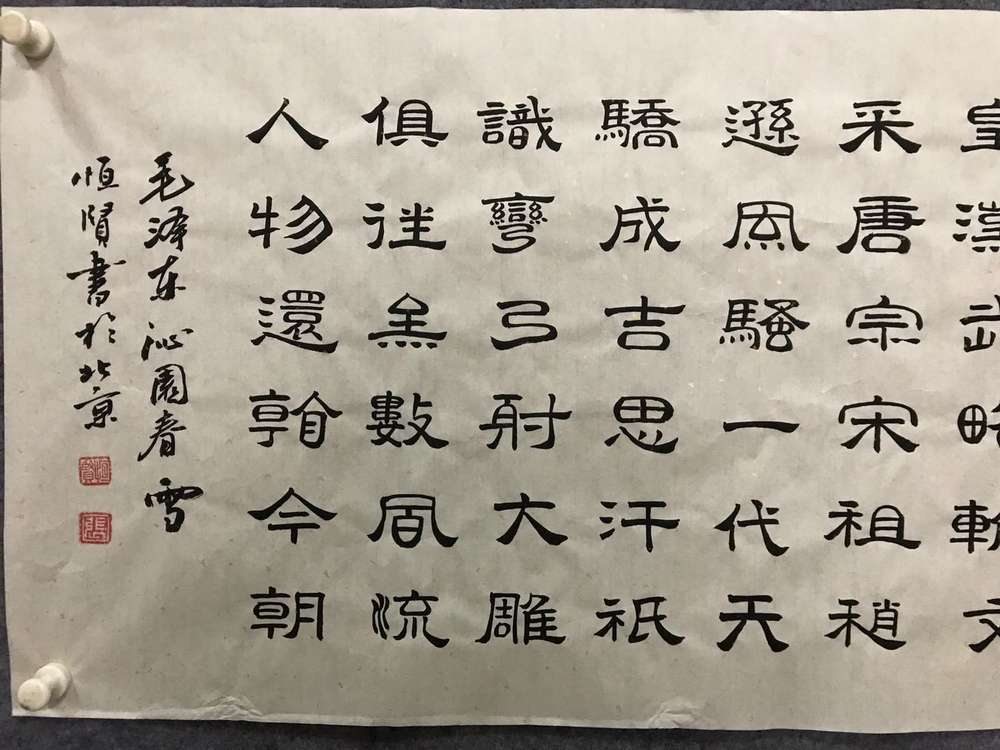 皇漢武略輸文
采唐宗宋祖稍
遜風騷一代天
驕成吉思汗祇
識彎弓射大雕
俱往矣數風流
人物還看今朝
毛泽东沁園春 雪
恒賢書於北京